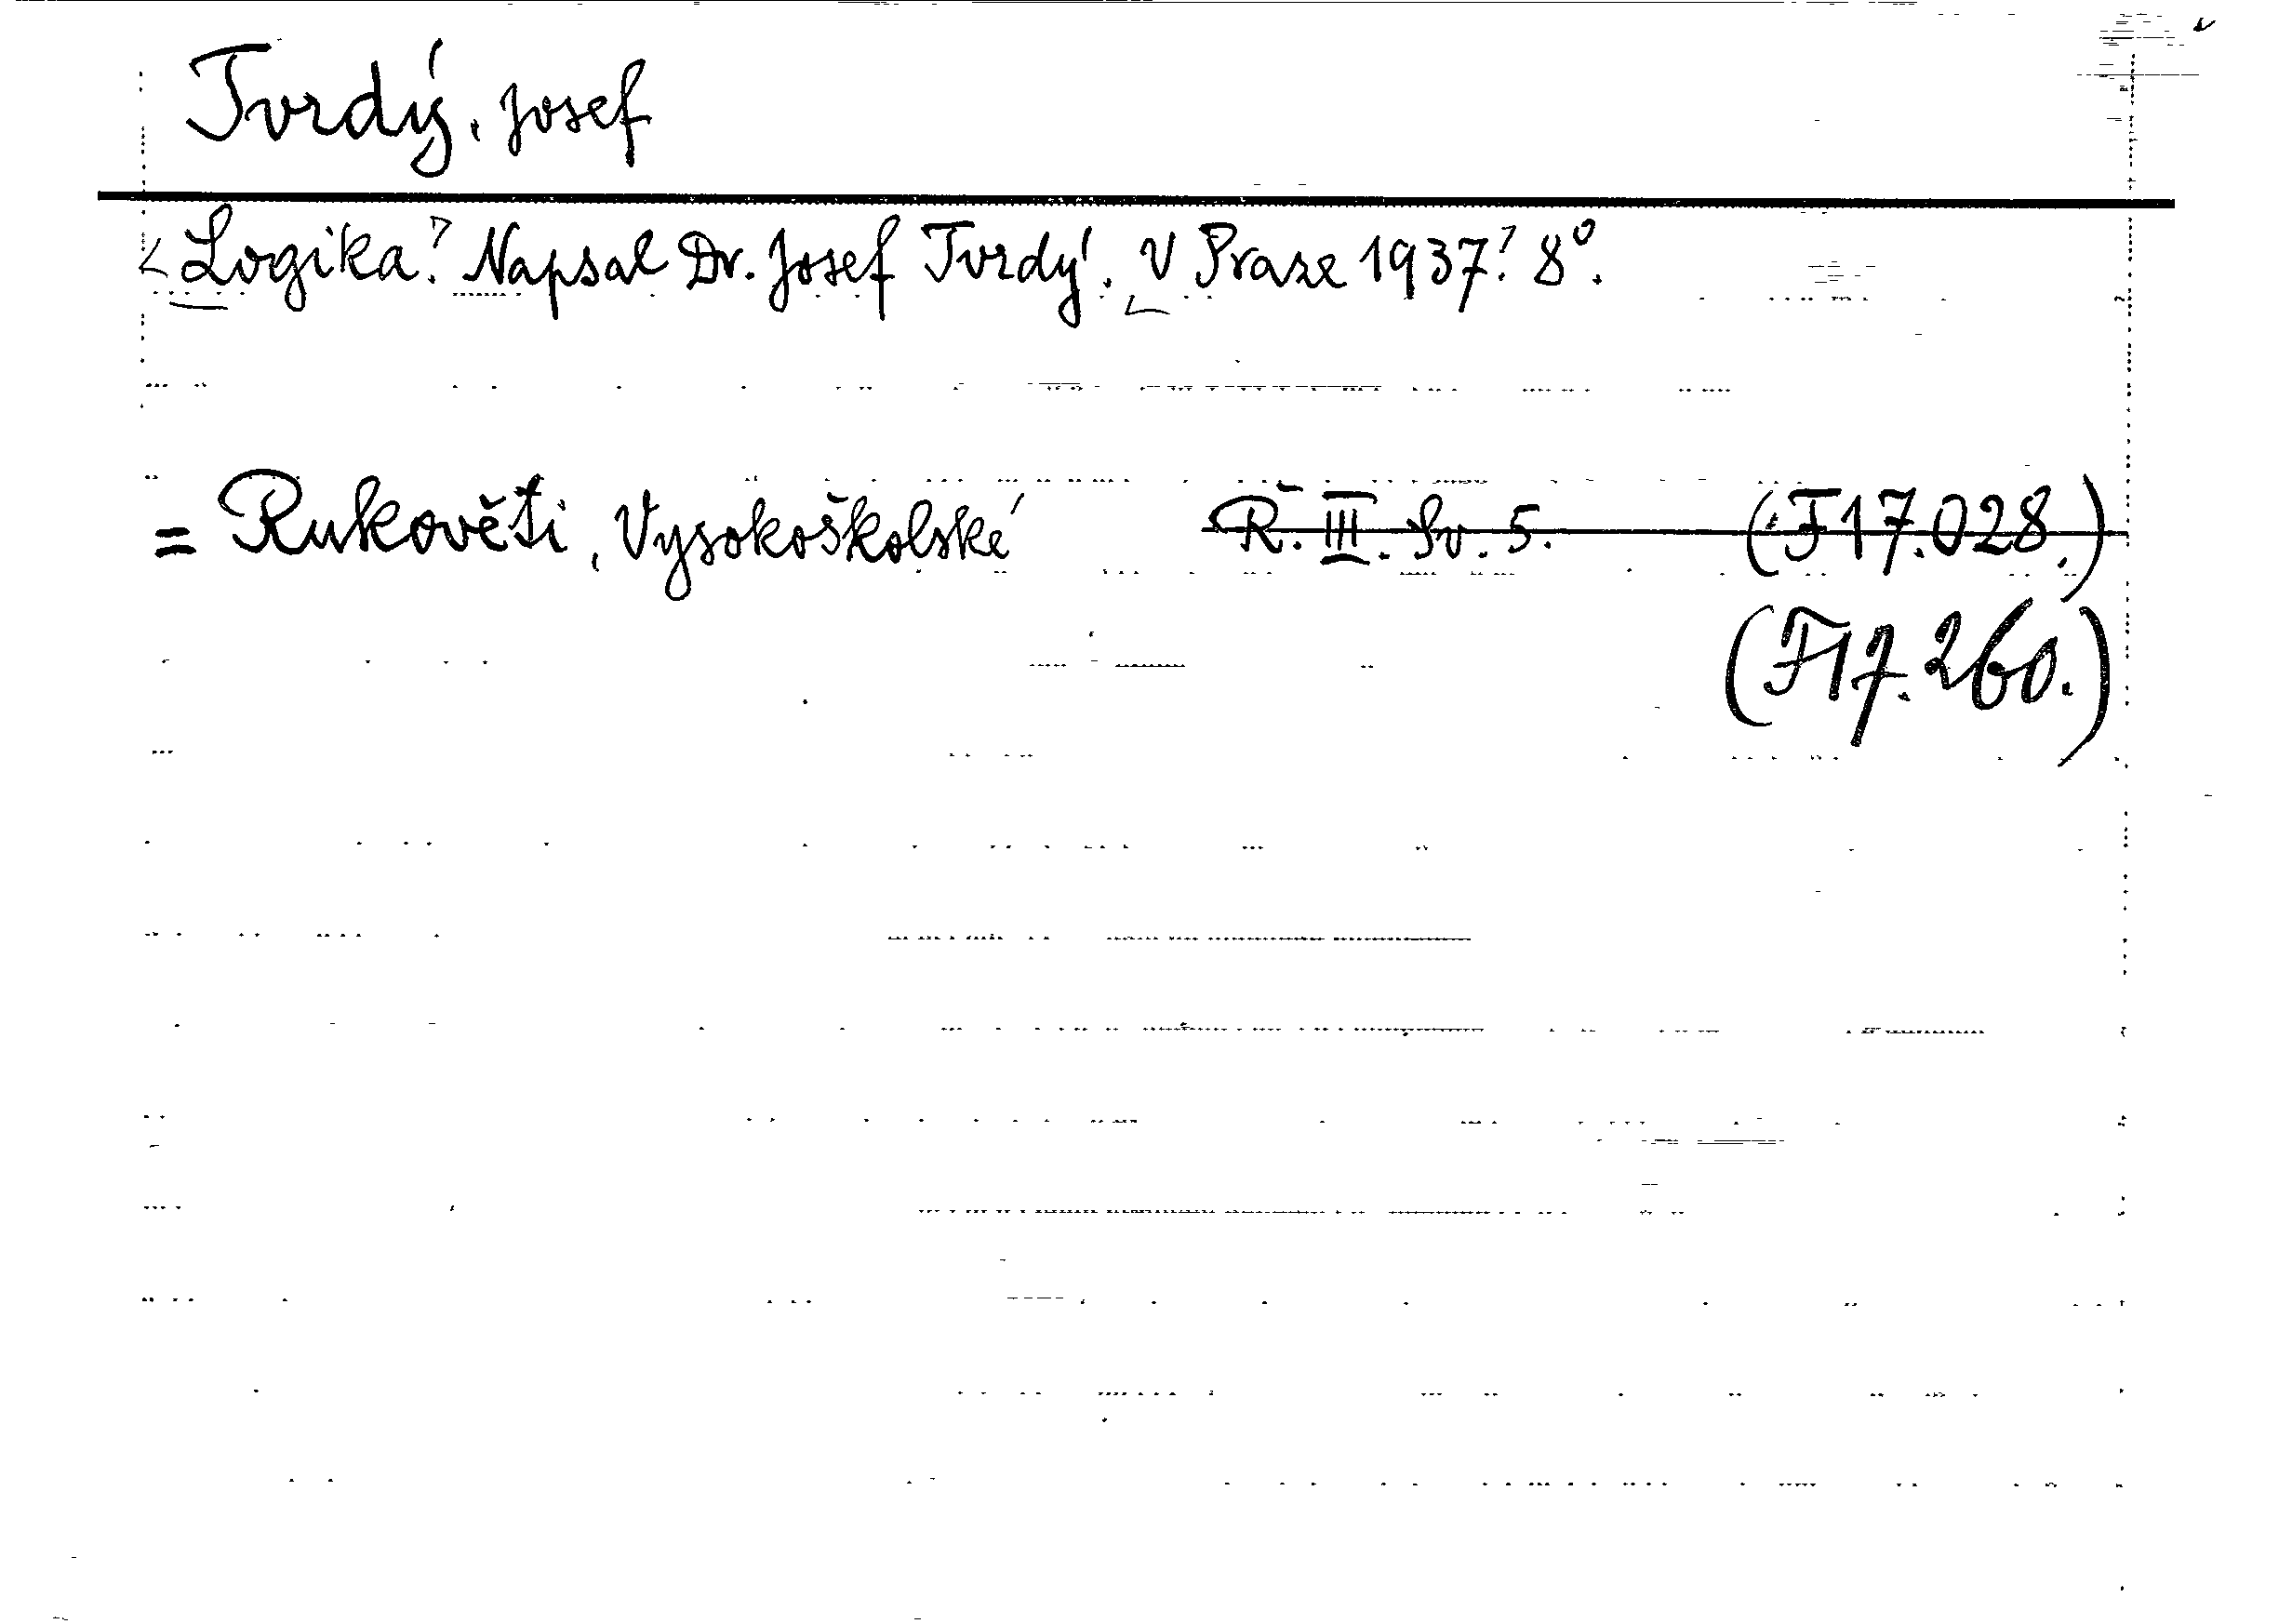 Tvrdý, Josef
Logika. Napsal Dr. Josef Tvrdý. V Praze 1937. 8°.
= Rukověti, Vysokoškolské Ř. III. Sv. 5. (F17.028.)
(F17.260.)